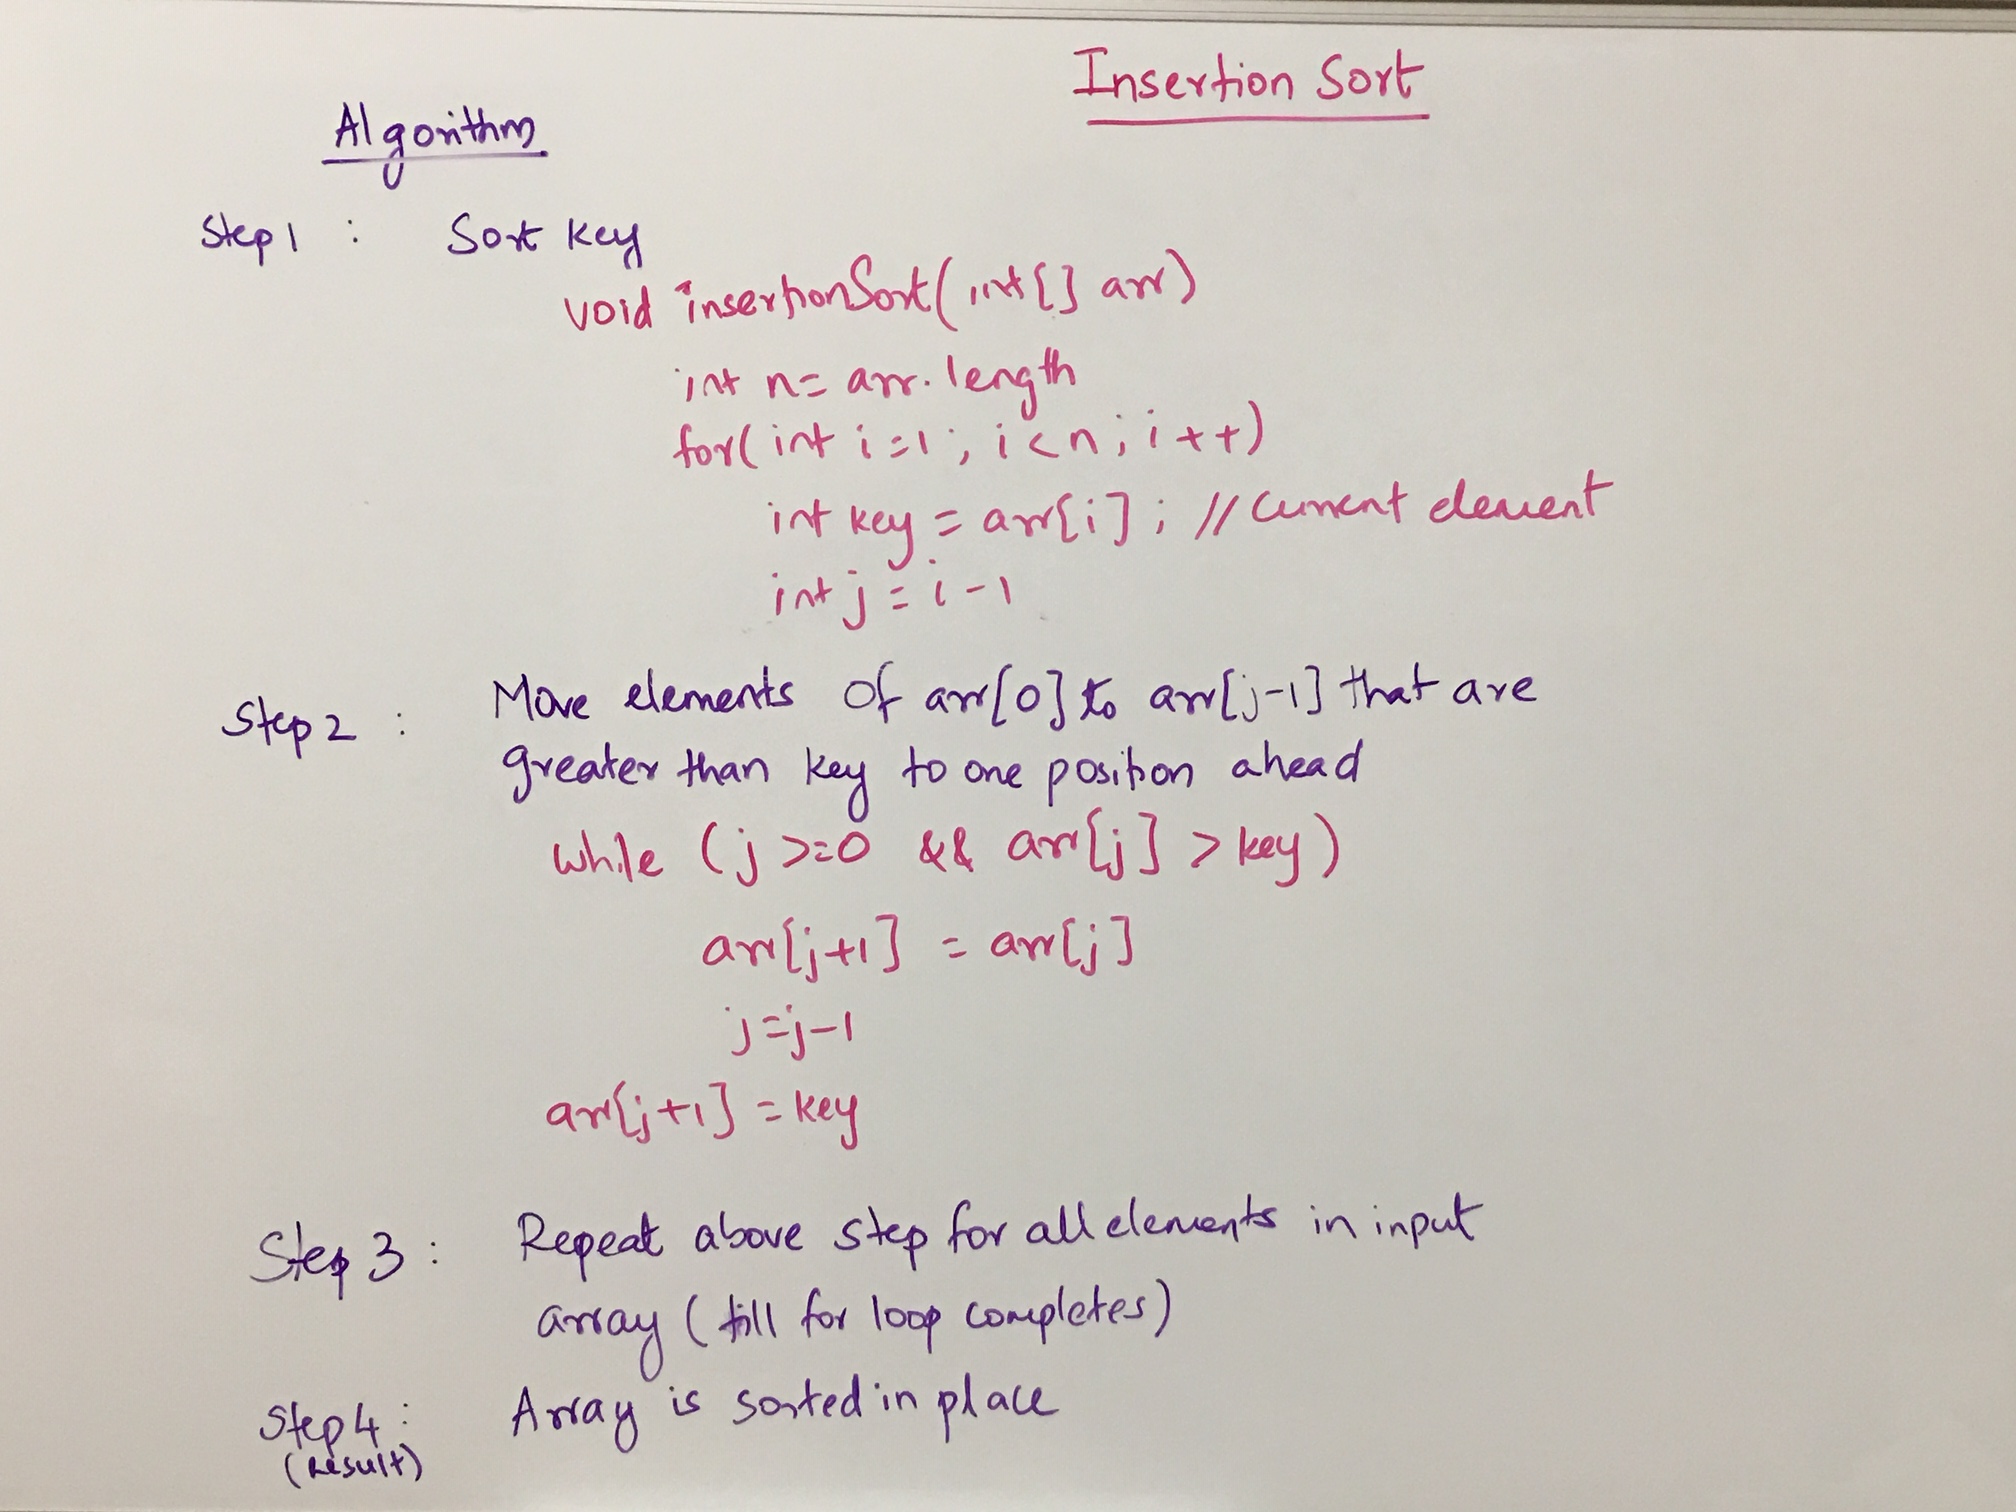 Insertion Sort
Algorithm
Step 1 : Sort key
void insertionSort(int[] arr)
int n= arr.length
for(int i=1; i<n; i++)
int key = arr[i]; // Current element
int j = i-1
Step 2 : Move elements of arr[0] to arr[j-1] that are
greater than key to one position ahead
while (j >=0 && arr[j] > key)
arr[j+1] = arr[j]
j=j-1
arr[j+1] = key
Step 3 : Repeat above step for all elements in input
array (till for loop completes)
Step 4 : Array is sorted in place
(result)